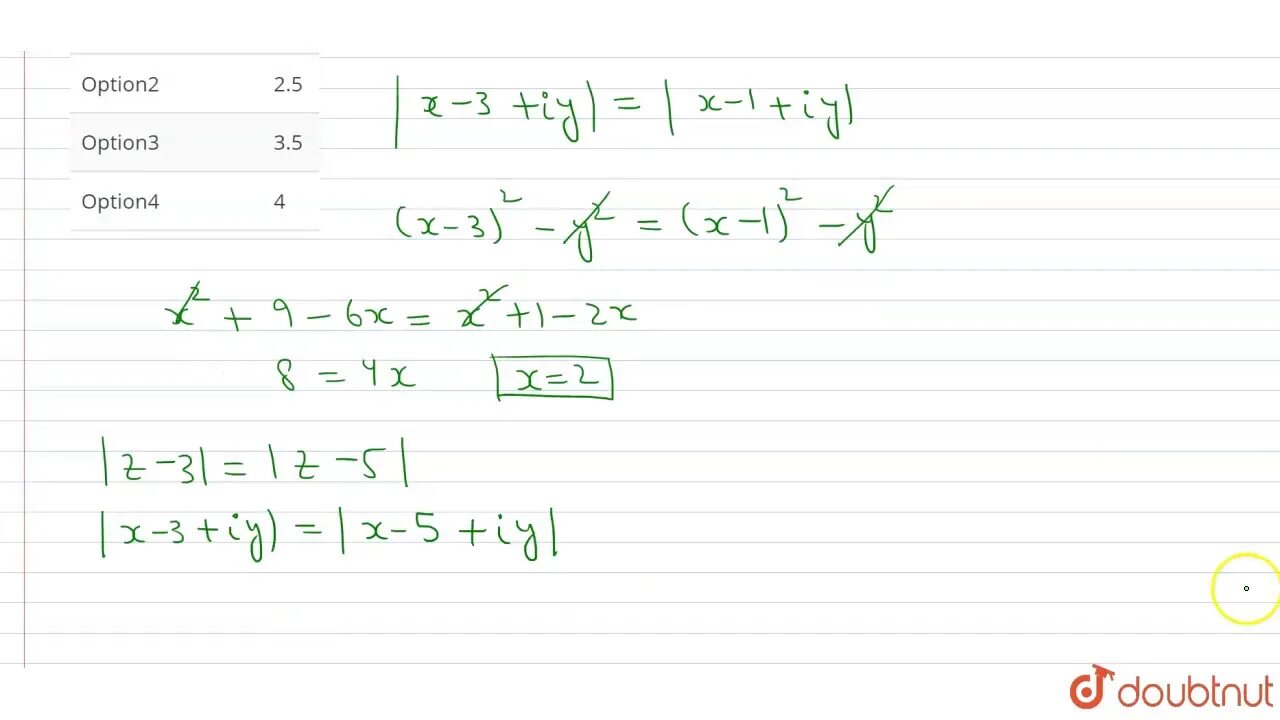 Option2 2.5
Option3 3.5
Option4 4
|x-3+iy| = |x-1+iy|
(x-3)² - y² = (x-1)² - y²
x² + 9 - 6x = x² + 1 - 2x
8 = 4x x=2
|z-3| = |z-5|
|x-3+iy) = |x-5+iy|
doubtnut